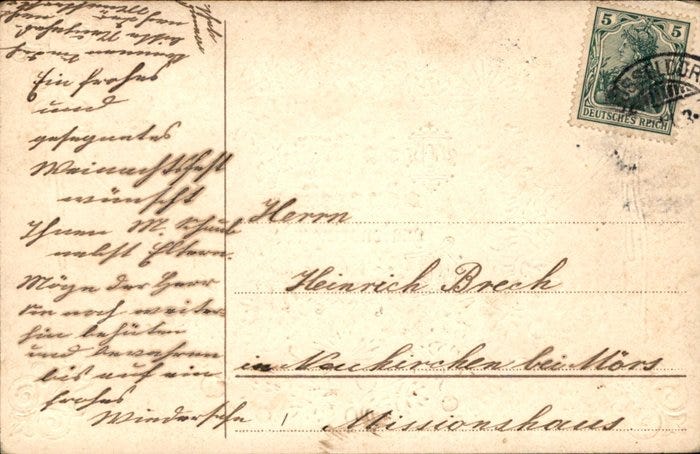 Ein frohes
und
gesegnetes
Weinachtsfest
wünscht
Ihnen M. Schulte
nebst Eltern.
Möge der Herr
Sie noch weiter
hin behüten
und bewahren
bis auf ein
frohes
Wiedersehn!
5 5
DEUTSCHES REICH
Herrn
Heinrich Brech
in Neukirchen bei Mörs
Missionshaus.